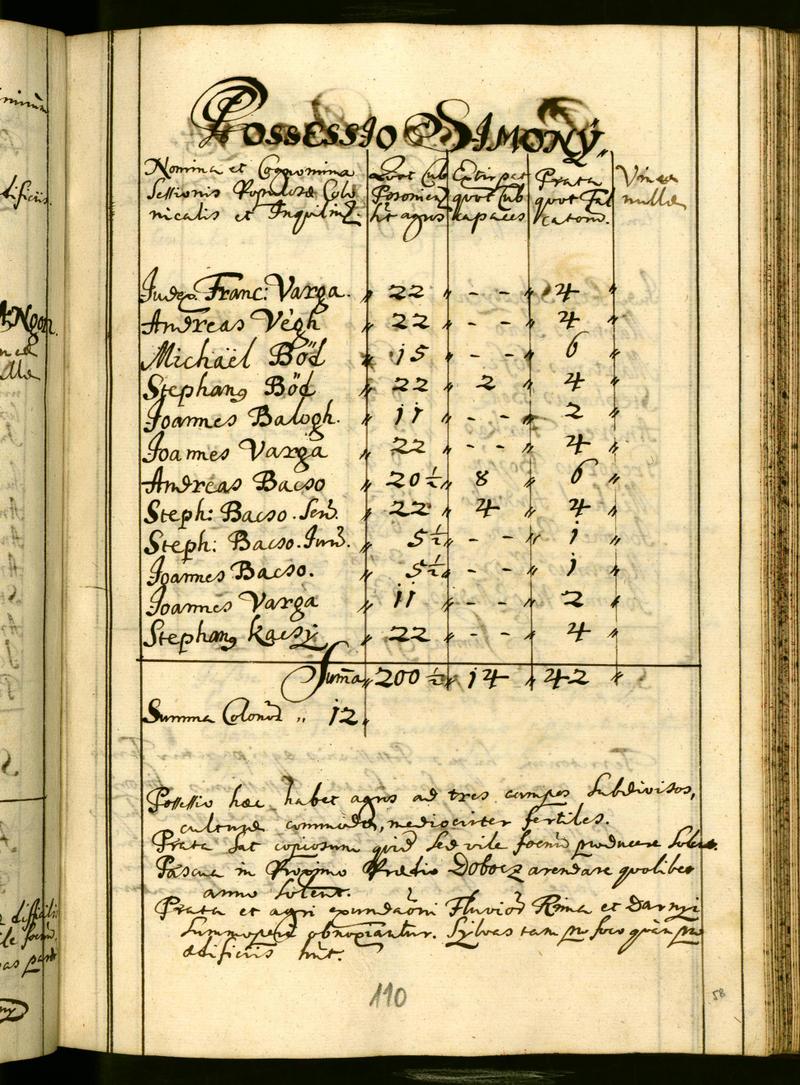 Possessio Simony
Nomina et Cognomina Quot Cub Extirpat Prata Vinea
Sessionis Populosæ Colo Posonien quot Cub quot Fal nulla
nicalis et Inquilin. hñt agros capaces catom.
Judex Franc: Varga. „ 22 „ - - „ 4 „
Andreas Végh „ 22 „ - - „ 4 „
Michaël Böd „ 15 „ - - „ 6 „
Stephang Böd „ 22 „ 2 „ 4 „
Joannes Balogh. „ 11 „ - - „ 2 „
Joannes Varga „ 22 „ - - „ 4 „
Andreas Bacso „ 20½ „ 8 „ 6 „
Steph: Bacso. Sen. „ 22 „ 4 „ 4 „
Steph: Bacso. Jun. „ 5½ „ - - „ 1 „
Joannes Bacso. „ 5½ „ - - „ 1 „
Joannes Varga „ 11 „ - - „ 2 „
Stephang Kacsy „ 22 „ - - „ 4 „
Sum̃a „ 200½ „ 14 „ 42 „
Summa Colonor̃ „ 12 „
Possessio hæc habet agros ad tres campos subdivisos,
culturæ commodæ, mediocriter fertiles.
Prata sat copiosum quid sed vile foenũ producere solent.
Pascua in Proximo Prædio Dobocz arendare quolibet
anno solent.
Prata et agri exundaõni Fluvior̃ Rima et Darnyi
summopere obnoxiantur. Sylvas tam pro foco quam pro
ædificiis hñt.
110
58